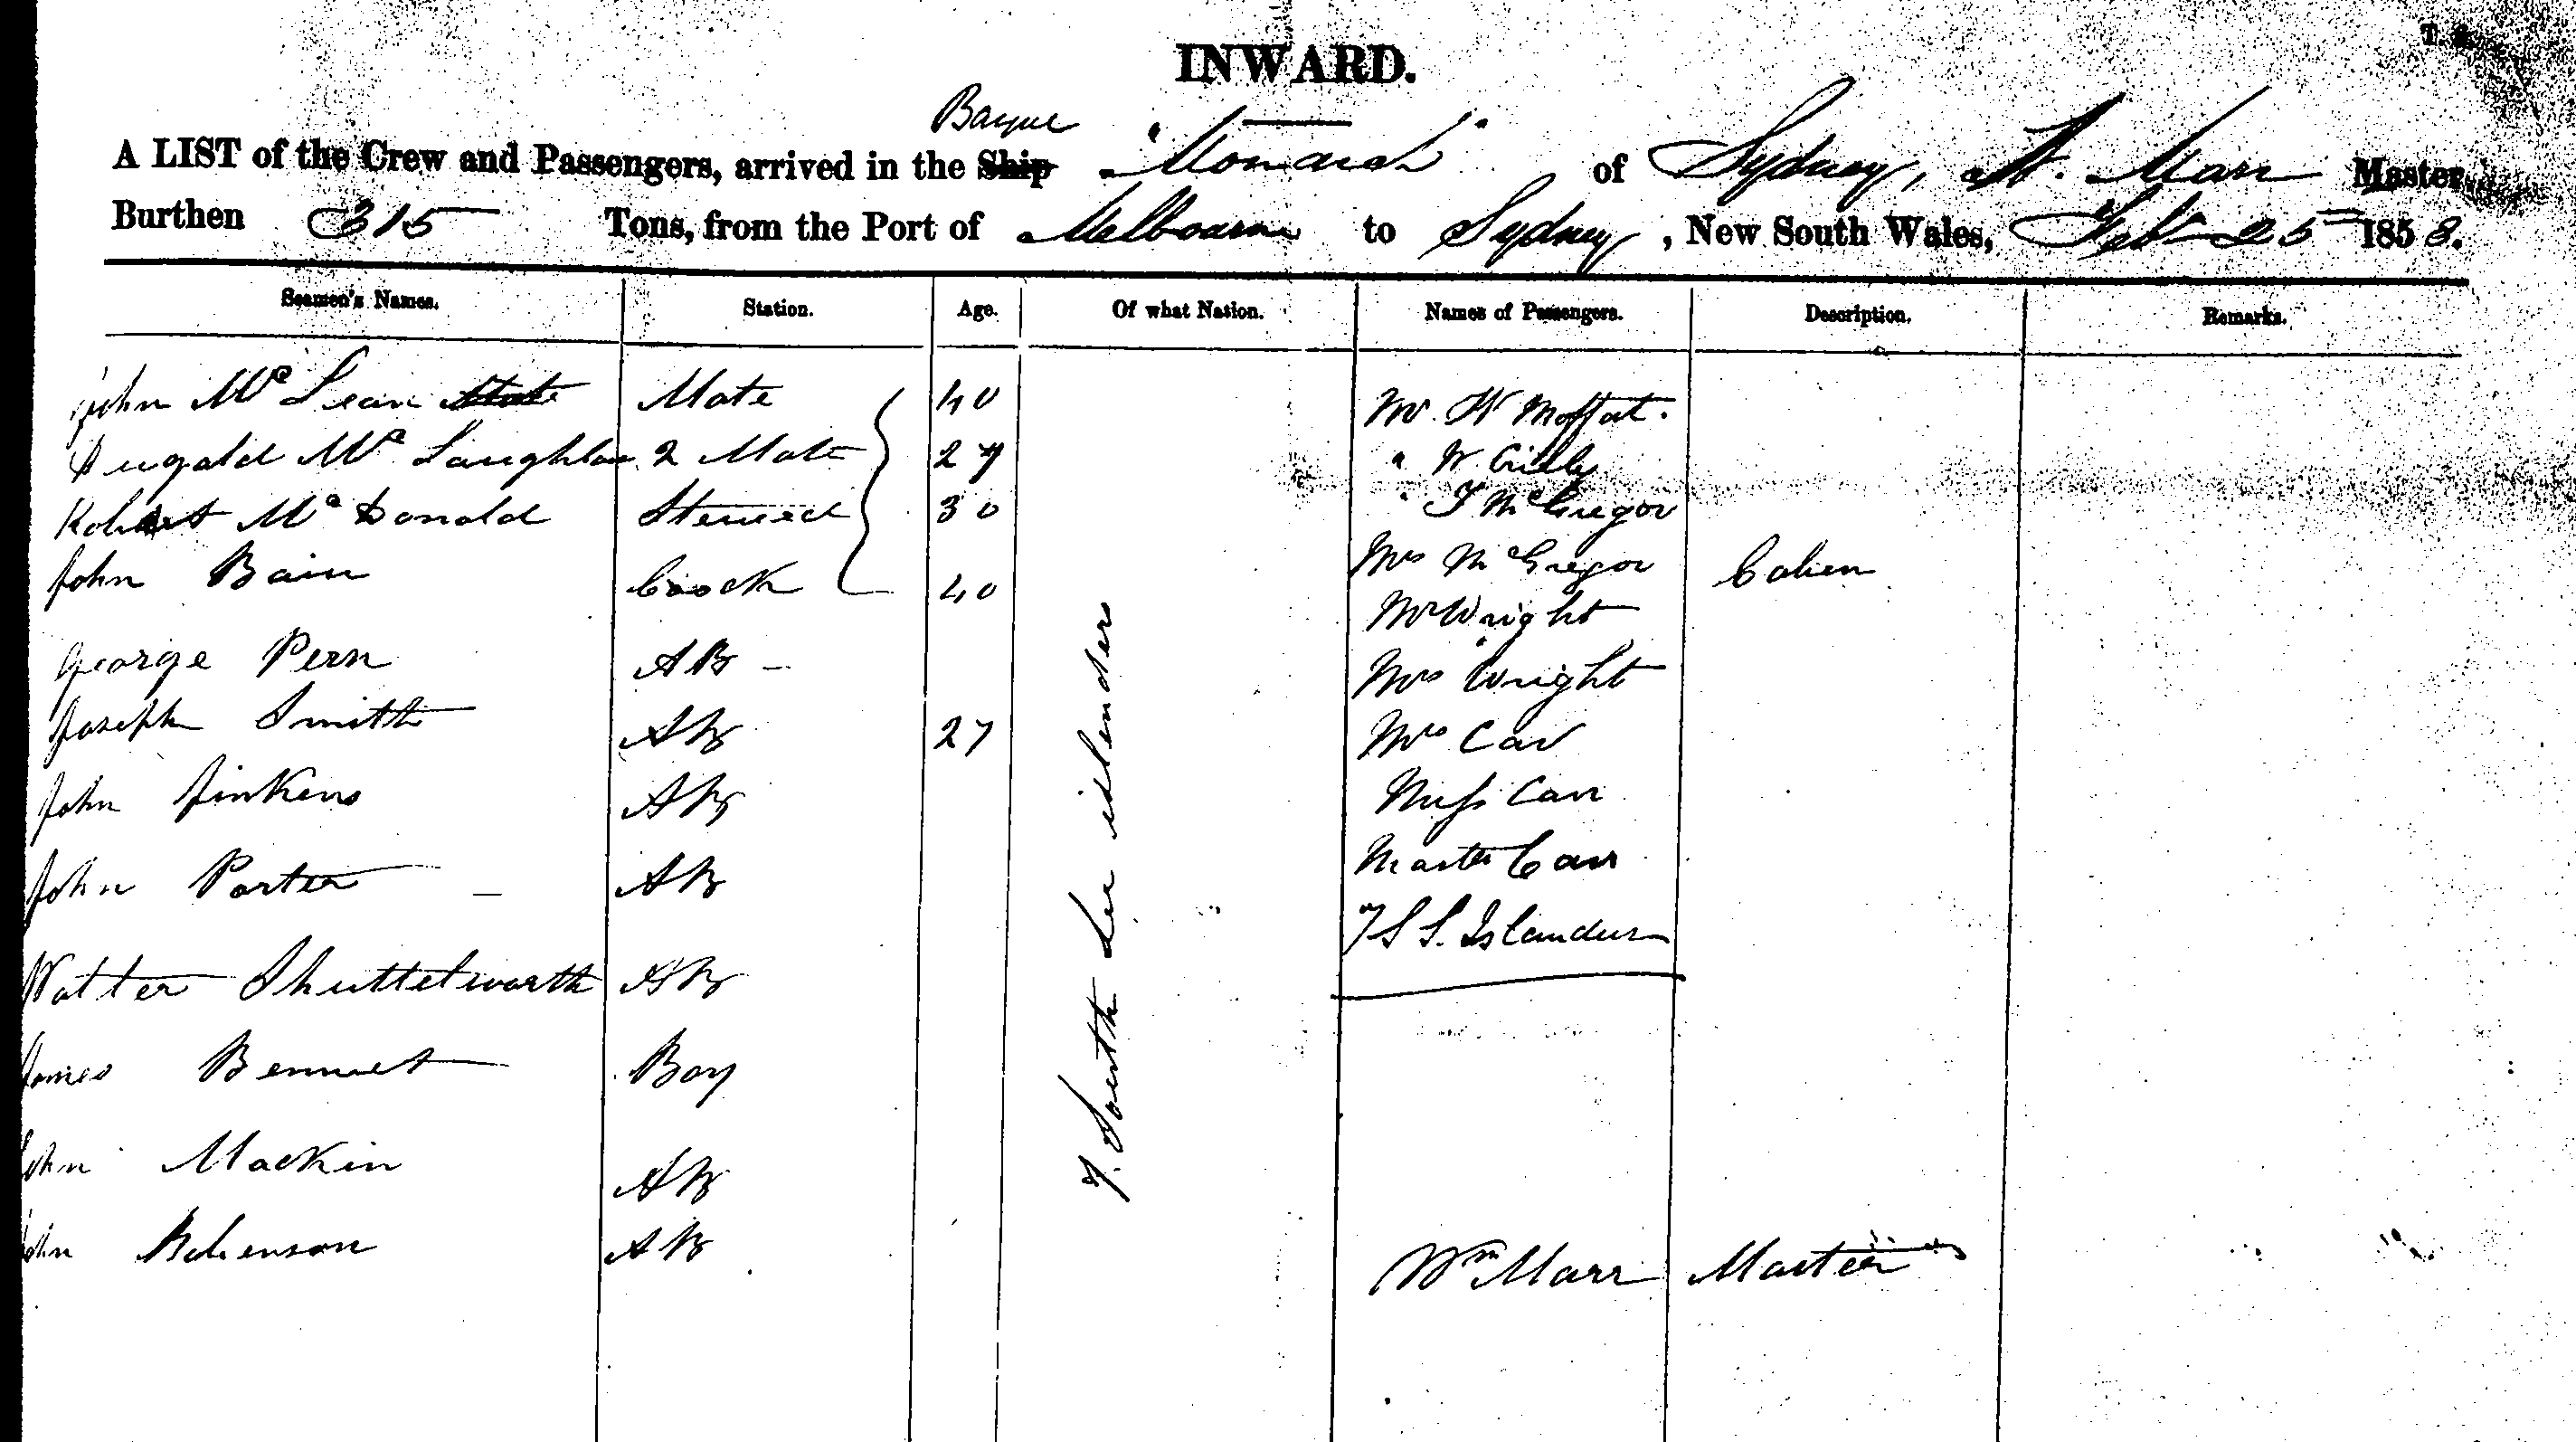 INWARD.
Barque
A LIST of the Crew and Passengers, arrived in the Ship "Monarch" of Sydney, W. Marr Master,
Burthen 315 Tons, from the Port of Melbourne to Sydney, New South Wales, Feb 25 1858.
Seamen's Names. Station. Age. Of what Nation. Names of Passengers. Description. Remarks.
John Mc Lean Mate 40 Mr. W Moffat.
Dugald Mc Laughlan 2 Mate 27 " W.
Robert Mc Donald Steward 30 " J McGregor
John Bain Coock 40 Mrs McGregor Caben
Mr Wright
George Pern AB - Mrs Wright
Joseph Smith AB 27 Mrs Car
John Jinkens AB Miss Carr
John Porter - AB Master Carr
7 S S. Islanders
Walter Shuttelworth AB
James Bennet Boy
John Mackin AB
John AB
7. South Sea islenders
Wm Marr Master